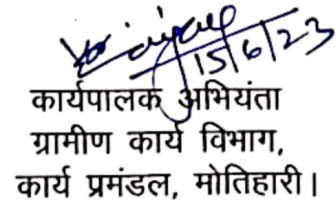 15/6/23
कार्यपालक अभियंता
ग्रामीण कार्य विभाग,
कार्य प्रमंडल, मोतिहारी।